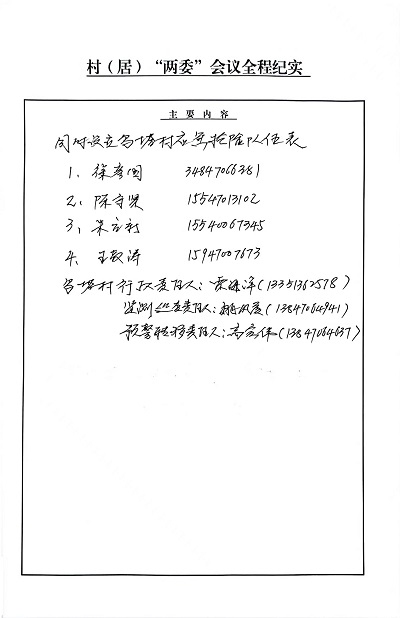 村（居）“两委”会议全程纪实
主 要 内 容
同时设立乌塔村应急抢险队伍表
1、徐彦国 34847066381
2、陈守贤 15547013102
3、朱立新 15540067345
4、王敬涛 15947007673
乌塔村行政责任人：栗海洋（13351362578）
监测巡查责任人：（13847064941）
预警转移责任人：高宏伟（13847064637）